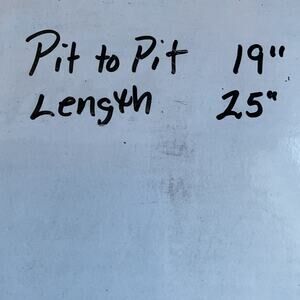 Pit to Pit 19"
Length 25"